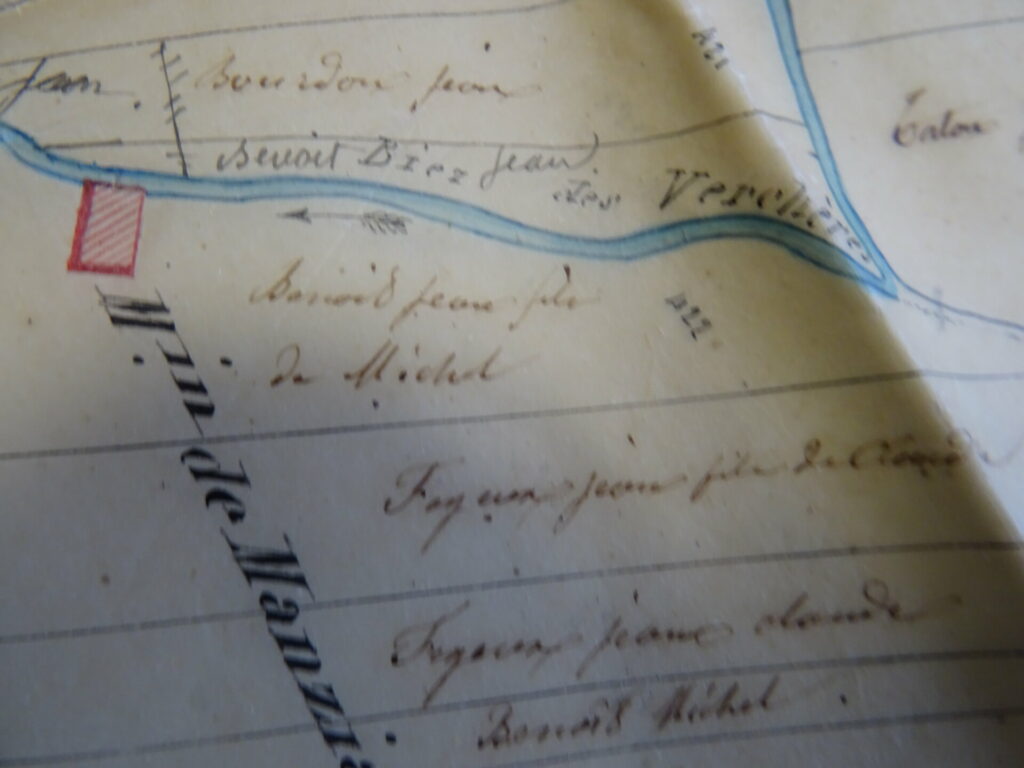 jean
Bourdon jean
421
Benoit Biez jean
Les Verchères
Calou
Benoit jean fils
de Michel
422
Min de Manzia
jean fils de Claude
jean claude
Benoit Michel